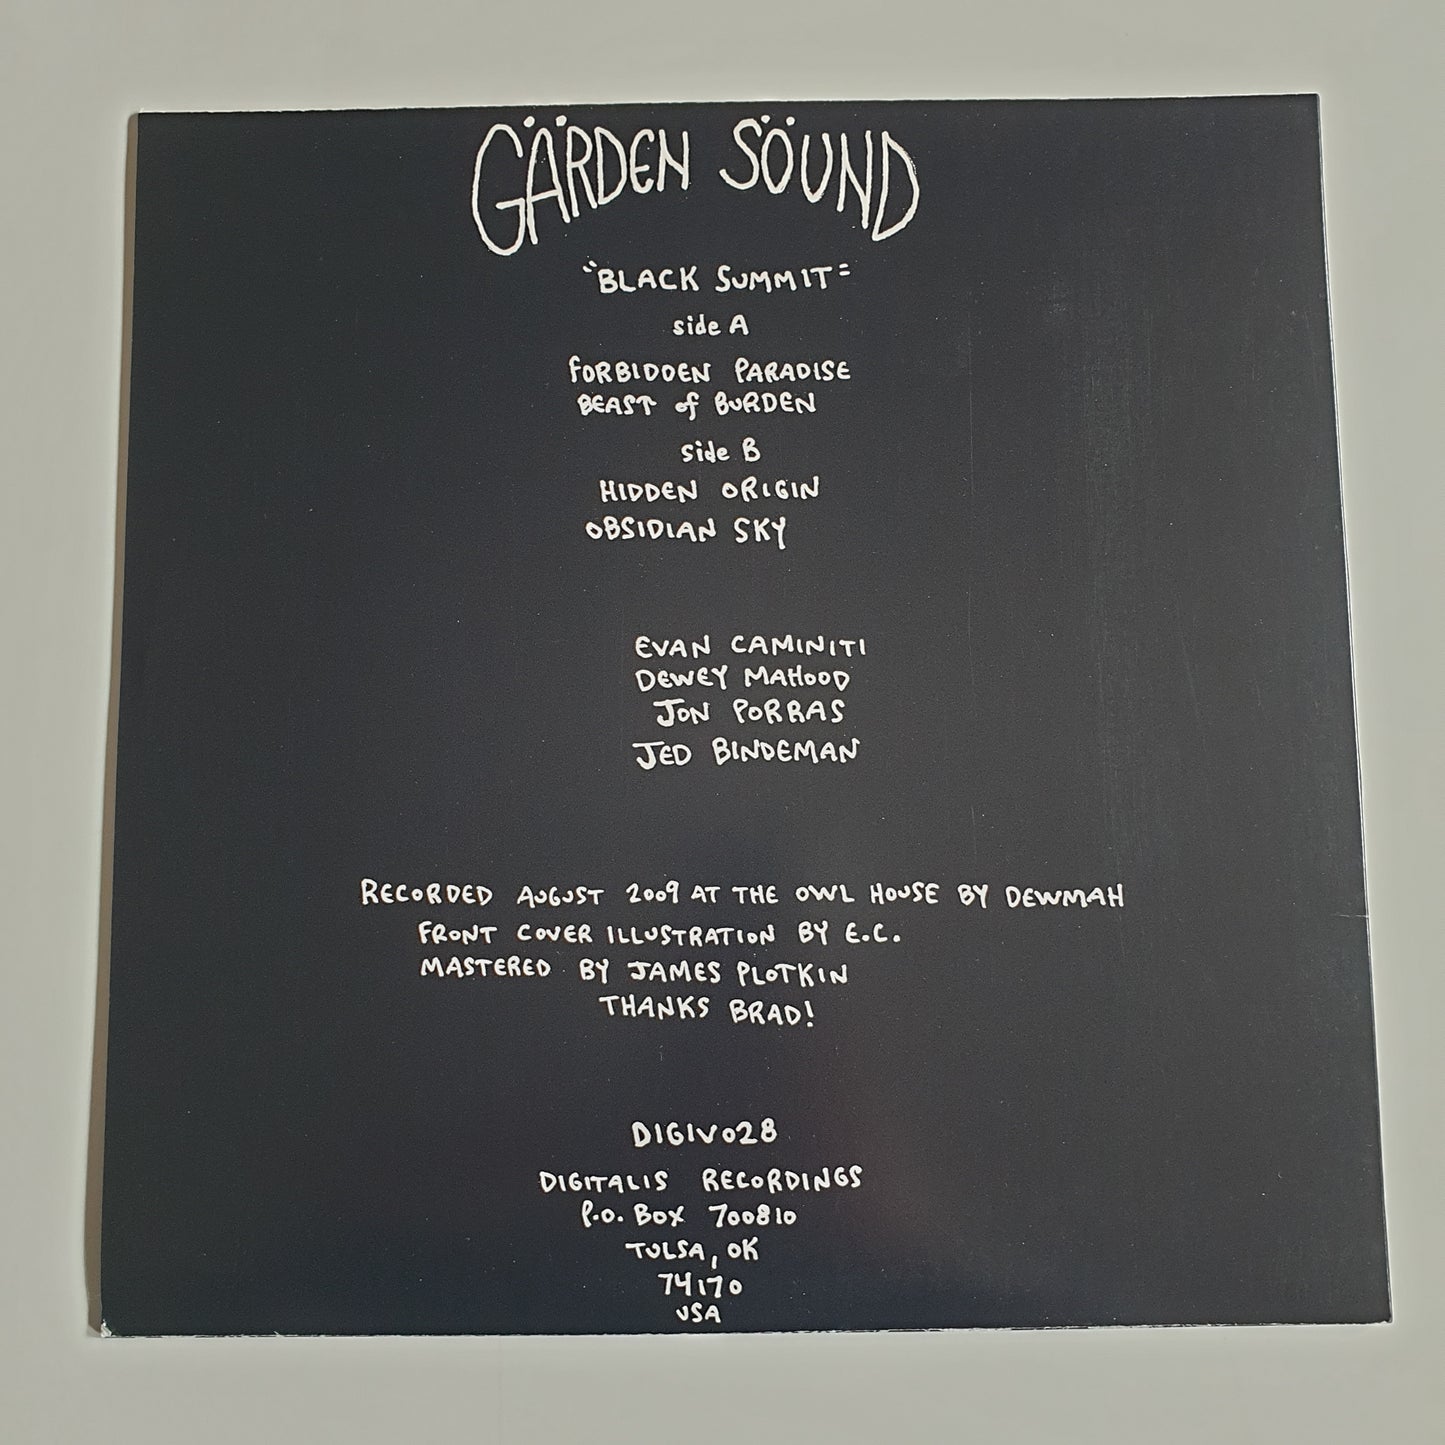 GÄRDEN SÖUND
"BLACK SUMMIT"
side A
FORBIDDEN PARADISE
BEAST of BURDEN
side B
HIDDEN ORIGIN
OBSIDIAN SKY
EVAN CAMINITI
DEWEY MAHOOD
JON PORRAS
JED BINDEMAN
RECORDED AUGUST 2009 AT THE OWL HOUSE BY DEWMAH
FRONT COVER ILLUSTRATION BY E.C.
MASTERED BY JAMES PLOTKIN
THANKS BRAD!
DIGIV028
DIGITALIS RECORDINGS
P.O. BOX 700810
TULSA, OK
74170
USA